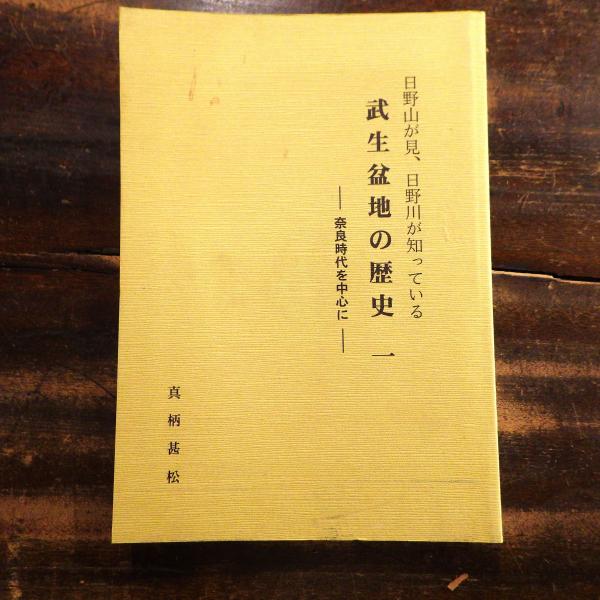 日野山が見、日野川が知っている
武生盆地の歴史 一
――奈良時代を中心に――
真柄甚松